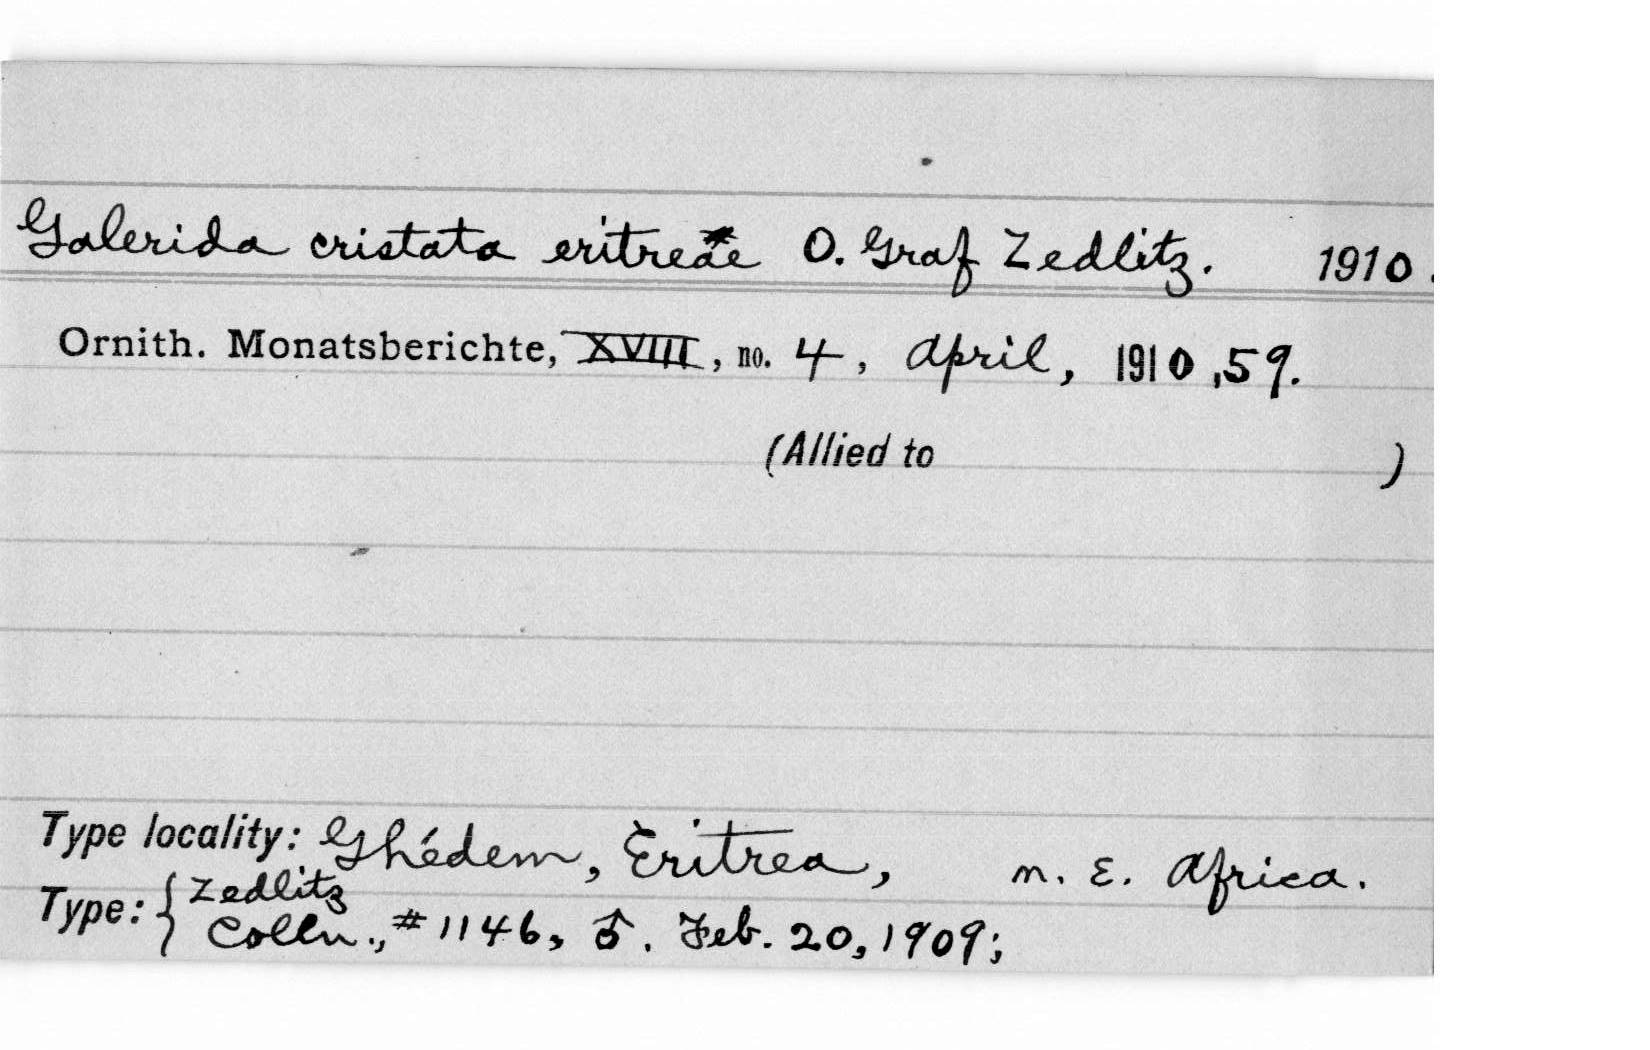 Galerida cristata eritreae O. Graf Zedlitz. 1910.
Ornith. Monatsberichte, XVIII, no. 4, April, 1910, 59.
(Allied to )
Type locality: Ghédem, Eritrea, n. E. Africa.
Type: { Zedlitz
Colln., #1146, ♂. Feb. 20, 1909;